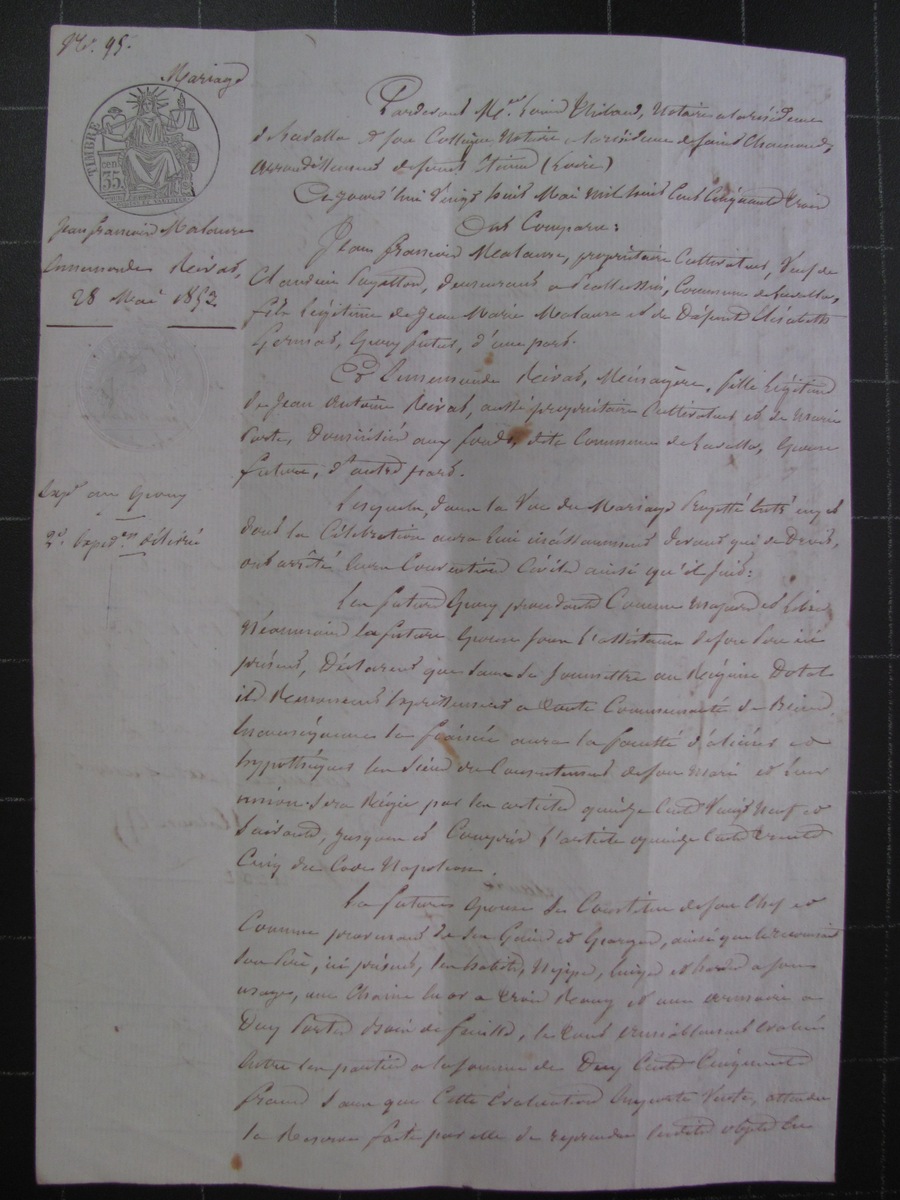 N°. 95.
Mariage
TIMBRE
cen
35
Jean françois Mataure
Ennemonde Reivat,
28 Mai 1853
Expé aux Epoux
2e. Expedon délivrée
Pardevant Me. Louis Thibaud, Notaire a la résidence
de Lavalla & son Collègue, Notaire a la résidence de Saint Chamond,
arrondissement de Saint Etienne (Loire)
Ce jourd'hui Vingt huit Mai mil huit Cent Cinquante trois
Ont Comparu:
Jean françois Mataure, propriétaire Cultivateur, Veuf de
Claudine demeurant a Commune de Lavalla,
fils Légitime de Jean Marie Mataure et de Défunte Elisabeth
Epoux futur, d'une part.
Et Ennemonde Reivat, Ménagère, fille Légitime
de Jean Antoine Reivat, aussi propriétaire Cultivateur et de Marie
domicilié aux fonds, dite Commune de Lavalla, Epouse
future, d'autre part.
Lesquels, dans la Vue du Mariage Projetté entr'eux et
dont la Célébration aura lieu incessamment devant qui de Droit,
ont arrêté leurs Conventions Civiles ainsi qu'il suit:
Les futurs Epoux procédants Comme Majeurs et libres
Néanmoins la future Epouse sous l'assistance de son Père ici
présent, Déclarent que sans se soumettre au Régime Dotal
ils Renoncent Expressément a toute Communauté de Biens.
En conséquence la fiancée aura la faculté d'aliéner et
hypothéquer les siens du Consentement de son Mari et leur
union sera Régie par les articles quinze Cent Vingt Neuf et
Suivants, jusques et Compris l'article quinze Cent trente
Cinq du Code Napoléon.
La future épouse se Constitue de son Chef et
Comme provenant de ses Gains et Epargnes, ainsi que le reconnait
son Père, ici présent, les habits, Nippes, linges et hardes a son
usage, une Chaine en or a trois Rangs et une armoire a
Deux Portes Bois de le tout amiablement évalué
Entre les parties a la somme de Deux Cent Cinquante
francs sans que Cette évaluation Emporte Vente, attendu
la Réserve faite par elle de reprendre lesdits objets En